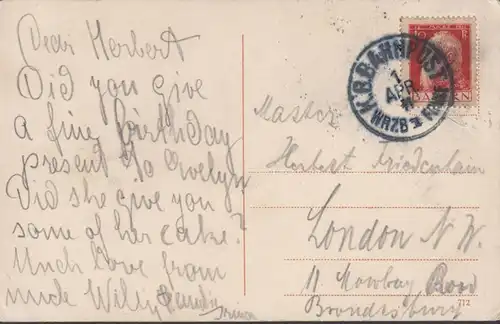 Dear Herbert
Did you give
a fine birthday
present to Evelyn
Did she give you
some of her cake?
Much love from
uncle Willy
K.B.BAHNPOST
1
APR
WRZB
BAYERN
Master
Herbert Friedenhain
London N.W.
11 Mowbray Road
Brondesbury
712